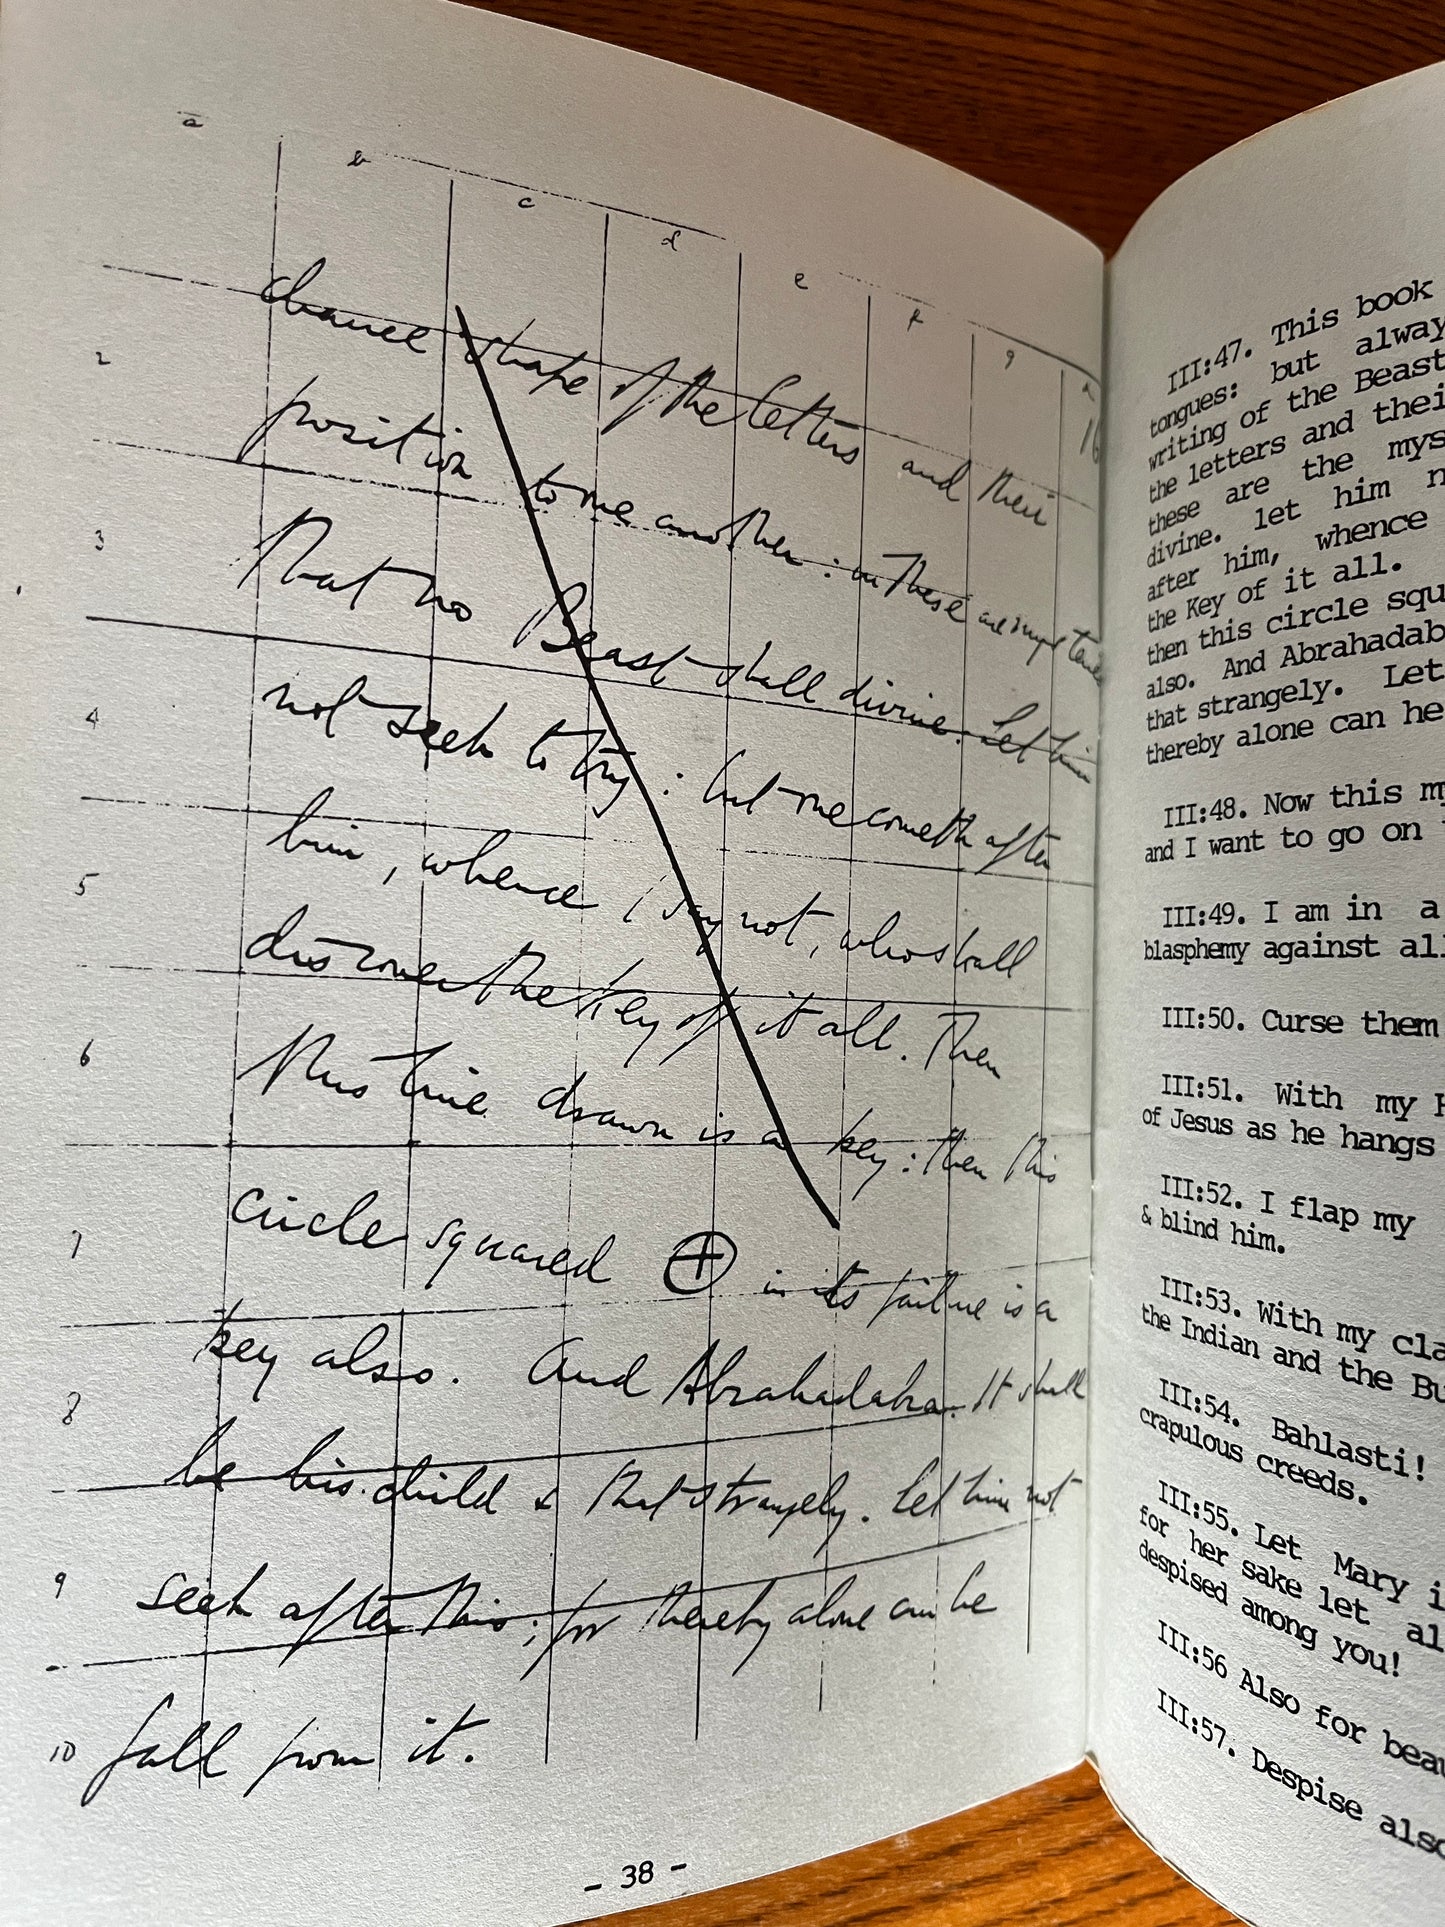 a b c d e f g h
chance shape of the letters and their 16
2
position to one another: in these are mysteries
3
that no Beast shall divine. Let him
4
not seek to try: but one cometh after
him, whence I say not, who shall
5
discover the Key of it all. Then
6
this line drawn is a key: then this
circle squared ⊕ in its failure is a
7
key also. And Abrahadabra. It shall
8
be his child & that strangely. Let him not
9
seek after this; for thereby alone can he
10 fall from it.
- 38 -
III:47. This book
tongues: but alway
writing of the Beast
the letters and thei
these are the mys
divine. let him n
after him, whence
the Key of it all.
then this circle squ
also. And Abrahadab
that strangely. Let
thereby alone can he
III:48. Now this my
and I want to go on
III:49. I am in a
blasphemy against all
III:50. Curse them
III:51. With my H
of Jesus as he hangs
III:52. I flap my
& blind him.
III:53. With my cla
the Indian and the Bu
III:54. Bahlasti!
crapulous creeds.
III:55. Let Mary i
for her sake let al
despised among you!
III:56 Also for beau
III:57. Despise also